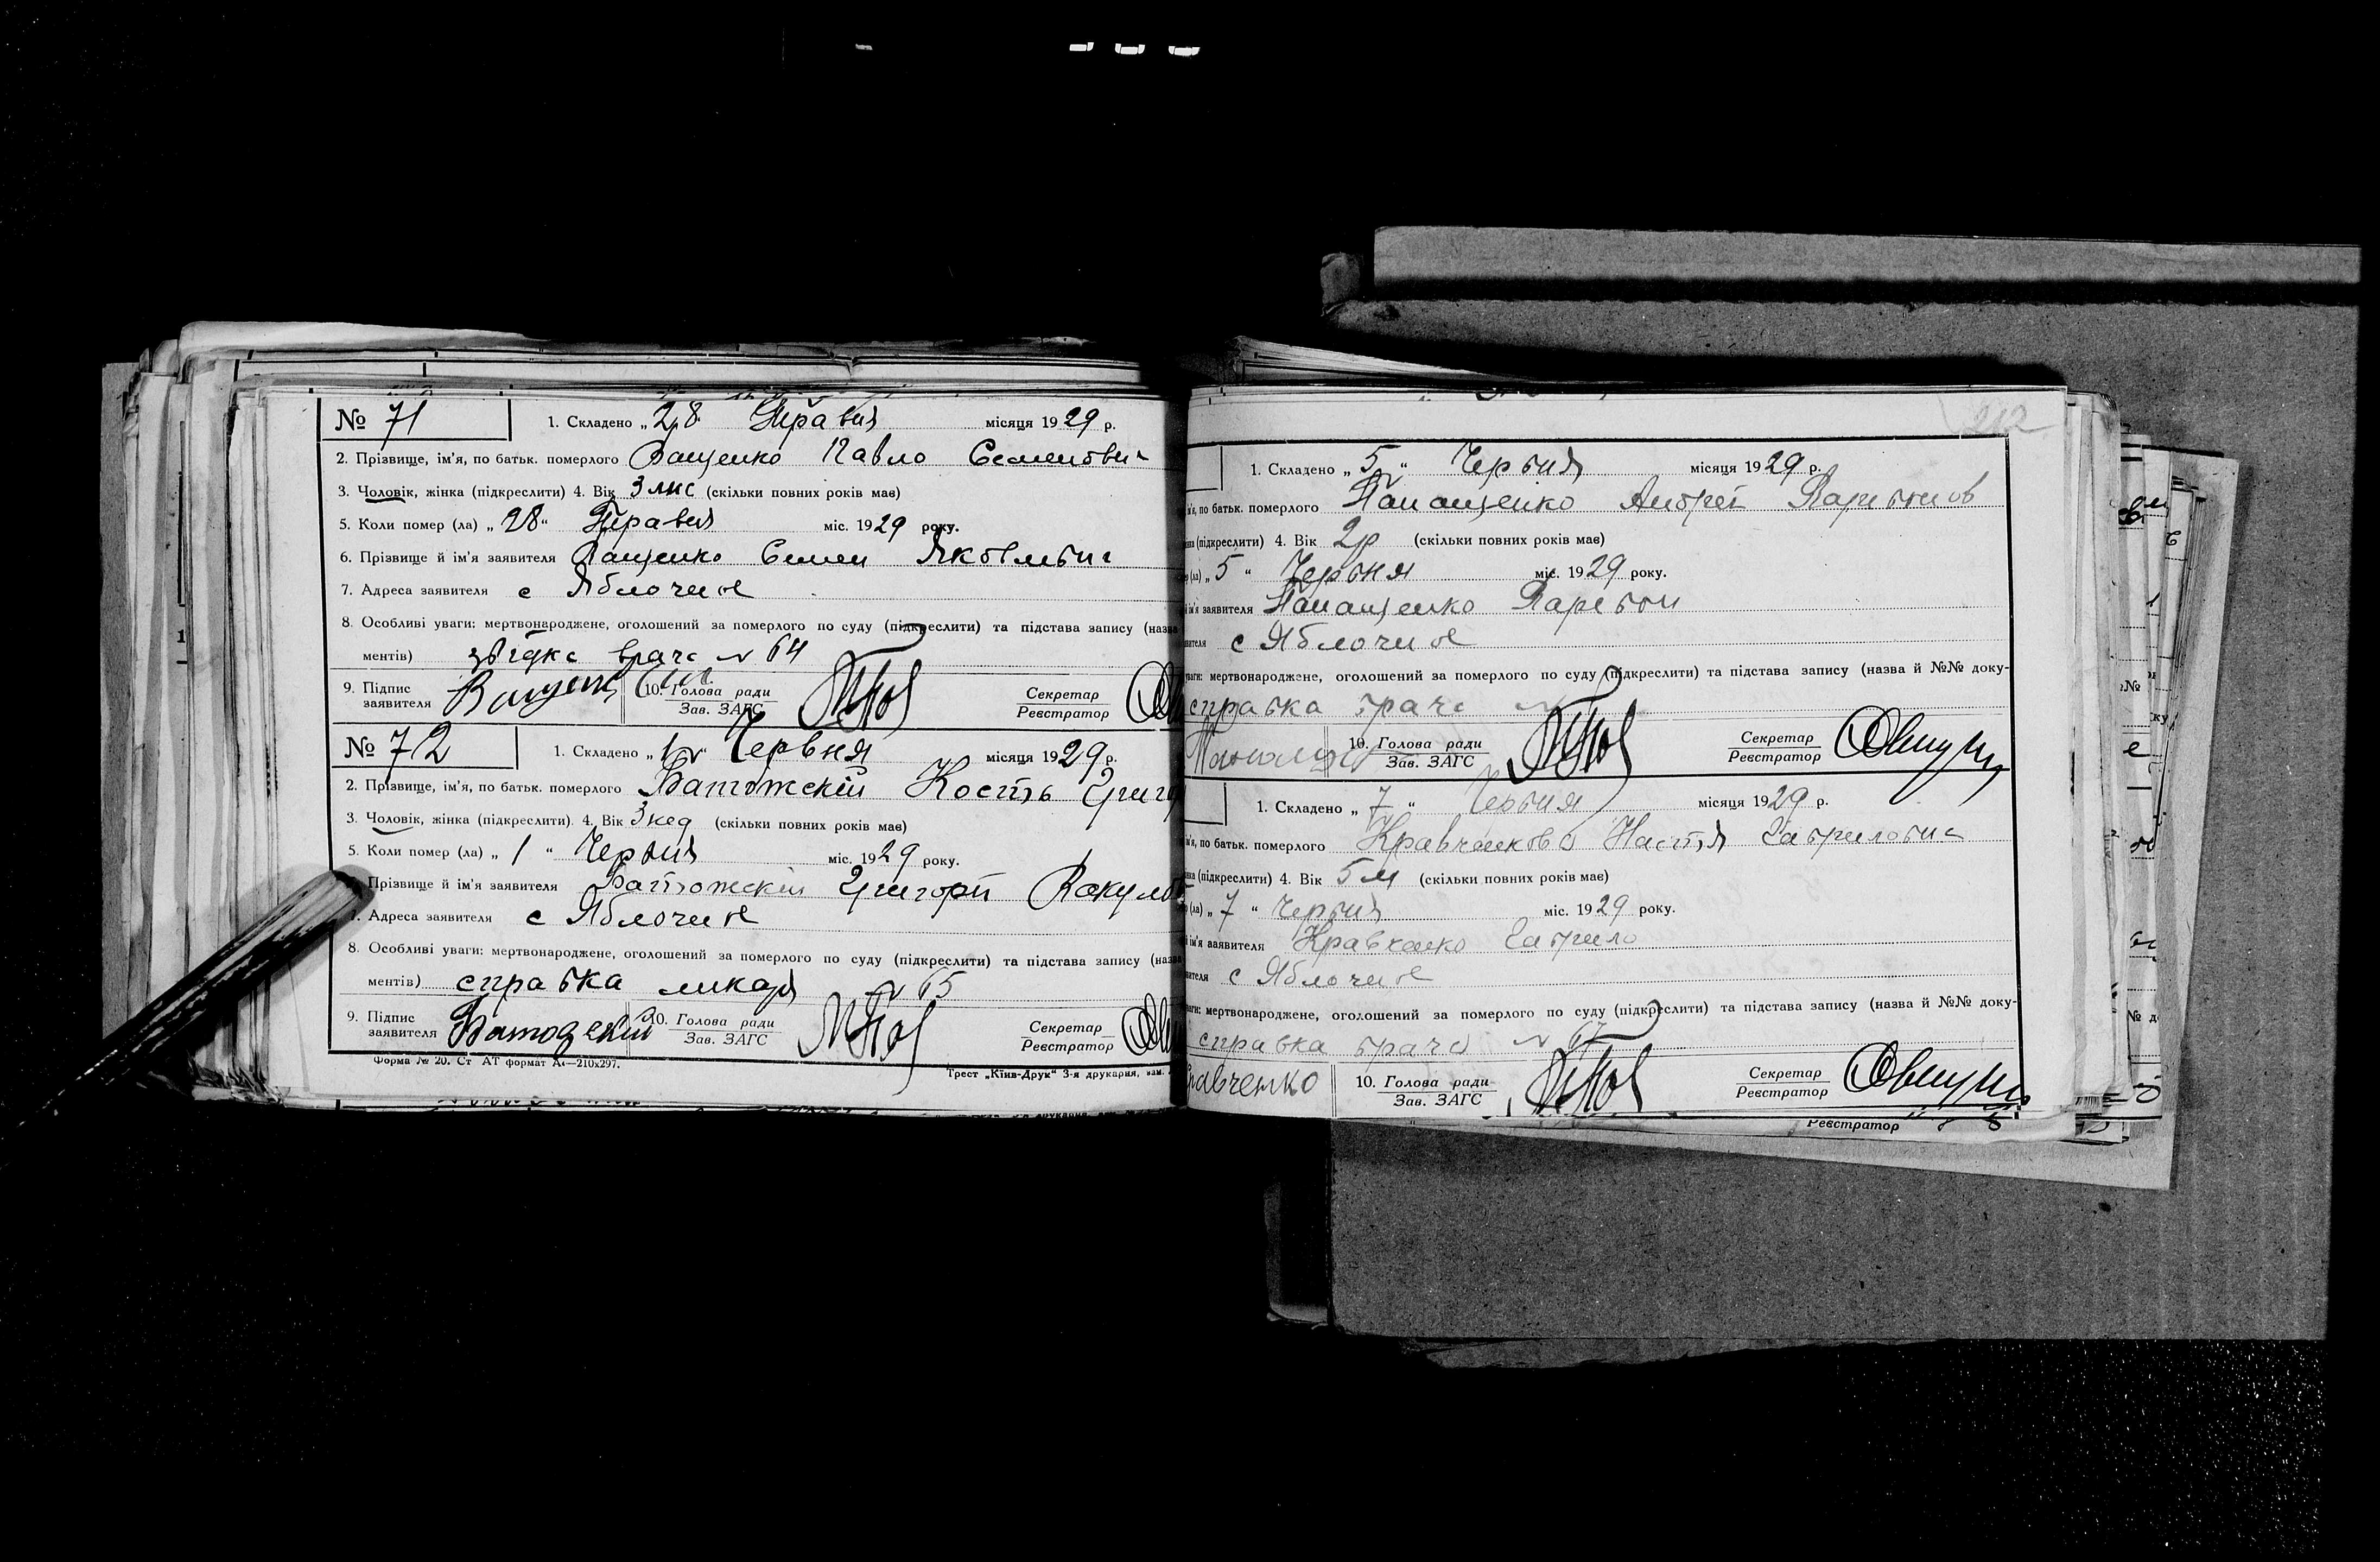 № 71 1. Складено „28 Травня місяця 1929 р.
2. Прізвище, ім'я, по батьк. померлого Ващенко Павло Семенович
3. Чоловік, жінка (підкреслити) 4. Вік 3 міс (скільки повних років має)
5. Коли помер (ла) „28“ Травня міс. 1929 року.
6. Прізвище й ім'я заявителя Ващенко Семен Яковлевич
7. Адреса заявителя с Яблочне
8. Особливі уваги: мертвонароджене, оголошений за померлого по суду (підкреслити) та підстава запису (назва
ментів) врача № 64
9. Підпис заявителя Ващенко 10. Голова ради Зав. ЗАГС Секретар Реєстратор
№ 72 1. Складено „1 Червня місяця 1929 р.
2. Прізвище, ім'я, по батьк. померлого Батожскій Кость Григ
3. Чоловік, жінка (підкреслити) 4. Вік 3 нед (скільки повних років має)
5. Коли помер (ла) „ 1 “ Червня міс. 1929 року.
Прізвище й ім'я заявителя Батожскій Григорій Вакуло
7. Адреса заявителя с Яблочне
8. Особливі уваги: мертвонароджене, оголошений за померлого по суду (підкреслити) та підстава запису (назва
ментів) справка ликаря № 65
9. Підпис заявителя 10. Голова ради Зав. ЗАГС Секретар Реєстратор
Форма № 20. Ст АТ формат А4—210х297. Трест „Київ-Друк“ 3-я друкарня, зам.
212
1. Складено „ 5 “ Червня місяця 1929 р.
м'я, по батьк. померлого Панащенко Андрей
(підкреслити) 4. Вік 2р (скільки повних років має)
(ла) „ 5 “ Червня міс. 1929 року.
й ім'я заявителя Панащенко
с Яблочне
уваги: мертвонароджене, оголошений за померлого по суду (підкреслити) та підстава запису (назва й №№ доку-
справка врача №
10. Голова ради Зав. ЗАГС Секретар Реєстратор
1. Складено „ 7 “ Червня місяця 1929 р.
м'я, по батьк. померлого Кравченкова Настя Гавриловна
(підкреслити) 4. Вік 5 м (скільки повних років має)
(ла) „ 7 “ Червня міс. 1929 року.
й ім'я заявителя Кравченко Гаврило
с Яблочне
уваги: мертвонароджене, оголошений за померлого по суду (підкреслити) та підстава запису (назва й №№ доку-
справка врача № 67
равченко 10. Голова ради Зав. ЗАГС Секретар Реєстратор
Реєстратор